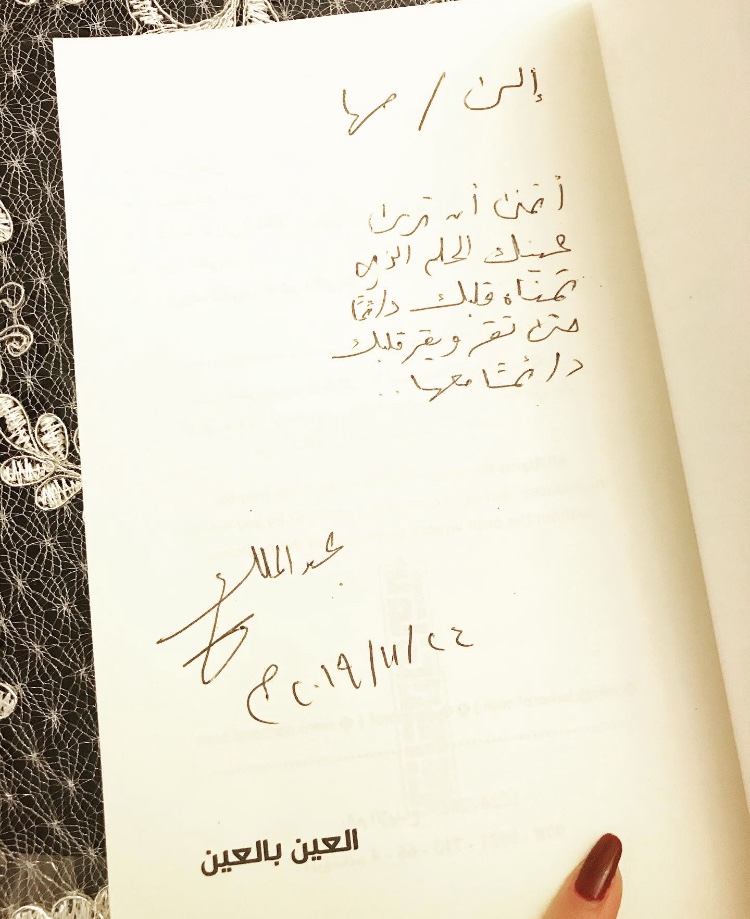 إلى / مها
أتمنى أن ترى
عينك الحلم الذي
تمناه قلبك دائمًا
حتى تقر ويقر قلبك
دائمًا معها ..
عبدالملك
٢٤/١١/٢٠١٩م
العين بالعين